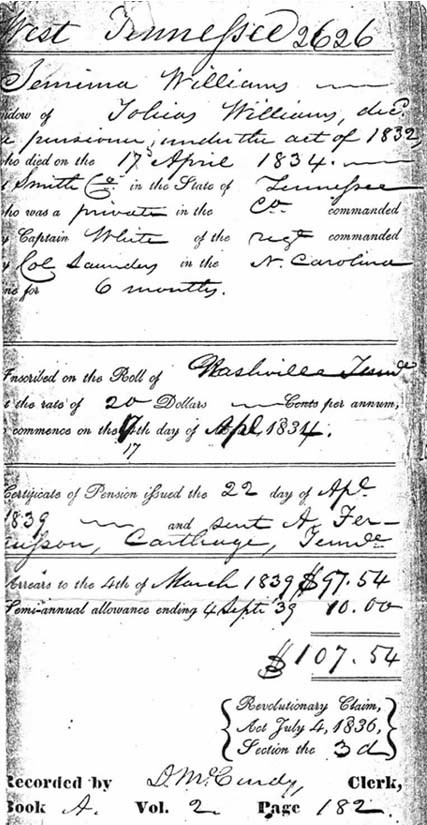 West Tennessee 2626
Jemima Williams
idow of Tobias Williams, decd.
a pensioner, under the act of 1832,
ho died on the 17 April 1834.
Smith Co in the State of Tennessee
ho was a private in the Co commanded
y Captain White of the regt commanded
y Col Saunders in the N. Carolina
ne for 6 months.
nscribed on the Roll of Nashville Tenn
t the rate of 20 Dollars Cents per annum,
commence on the th day of Apl, 1834.
17
Certificate of Pension issued the 22 day of Apl
1839 and sent A. Fer-
gusson, Carthage, Tenn
Arrears to the 4th of March 1839 $97.54
Semi-annual allowance ending 4 Septr 39 10.00
$107.54
Revolutionary Claim,
Act July 4, 1836,
Section the 3d
Recorded by D. McCurdy, Clerk,
Book A. Vol. 2. Page 182.